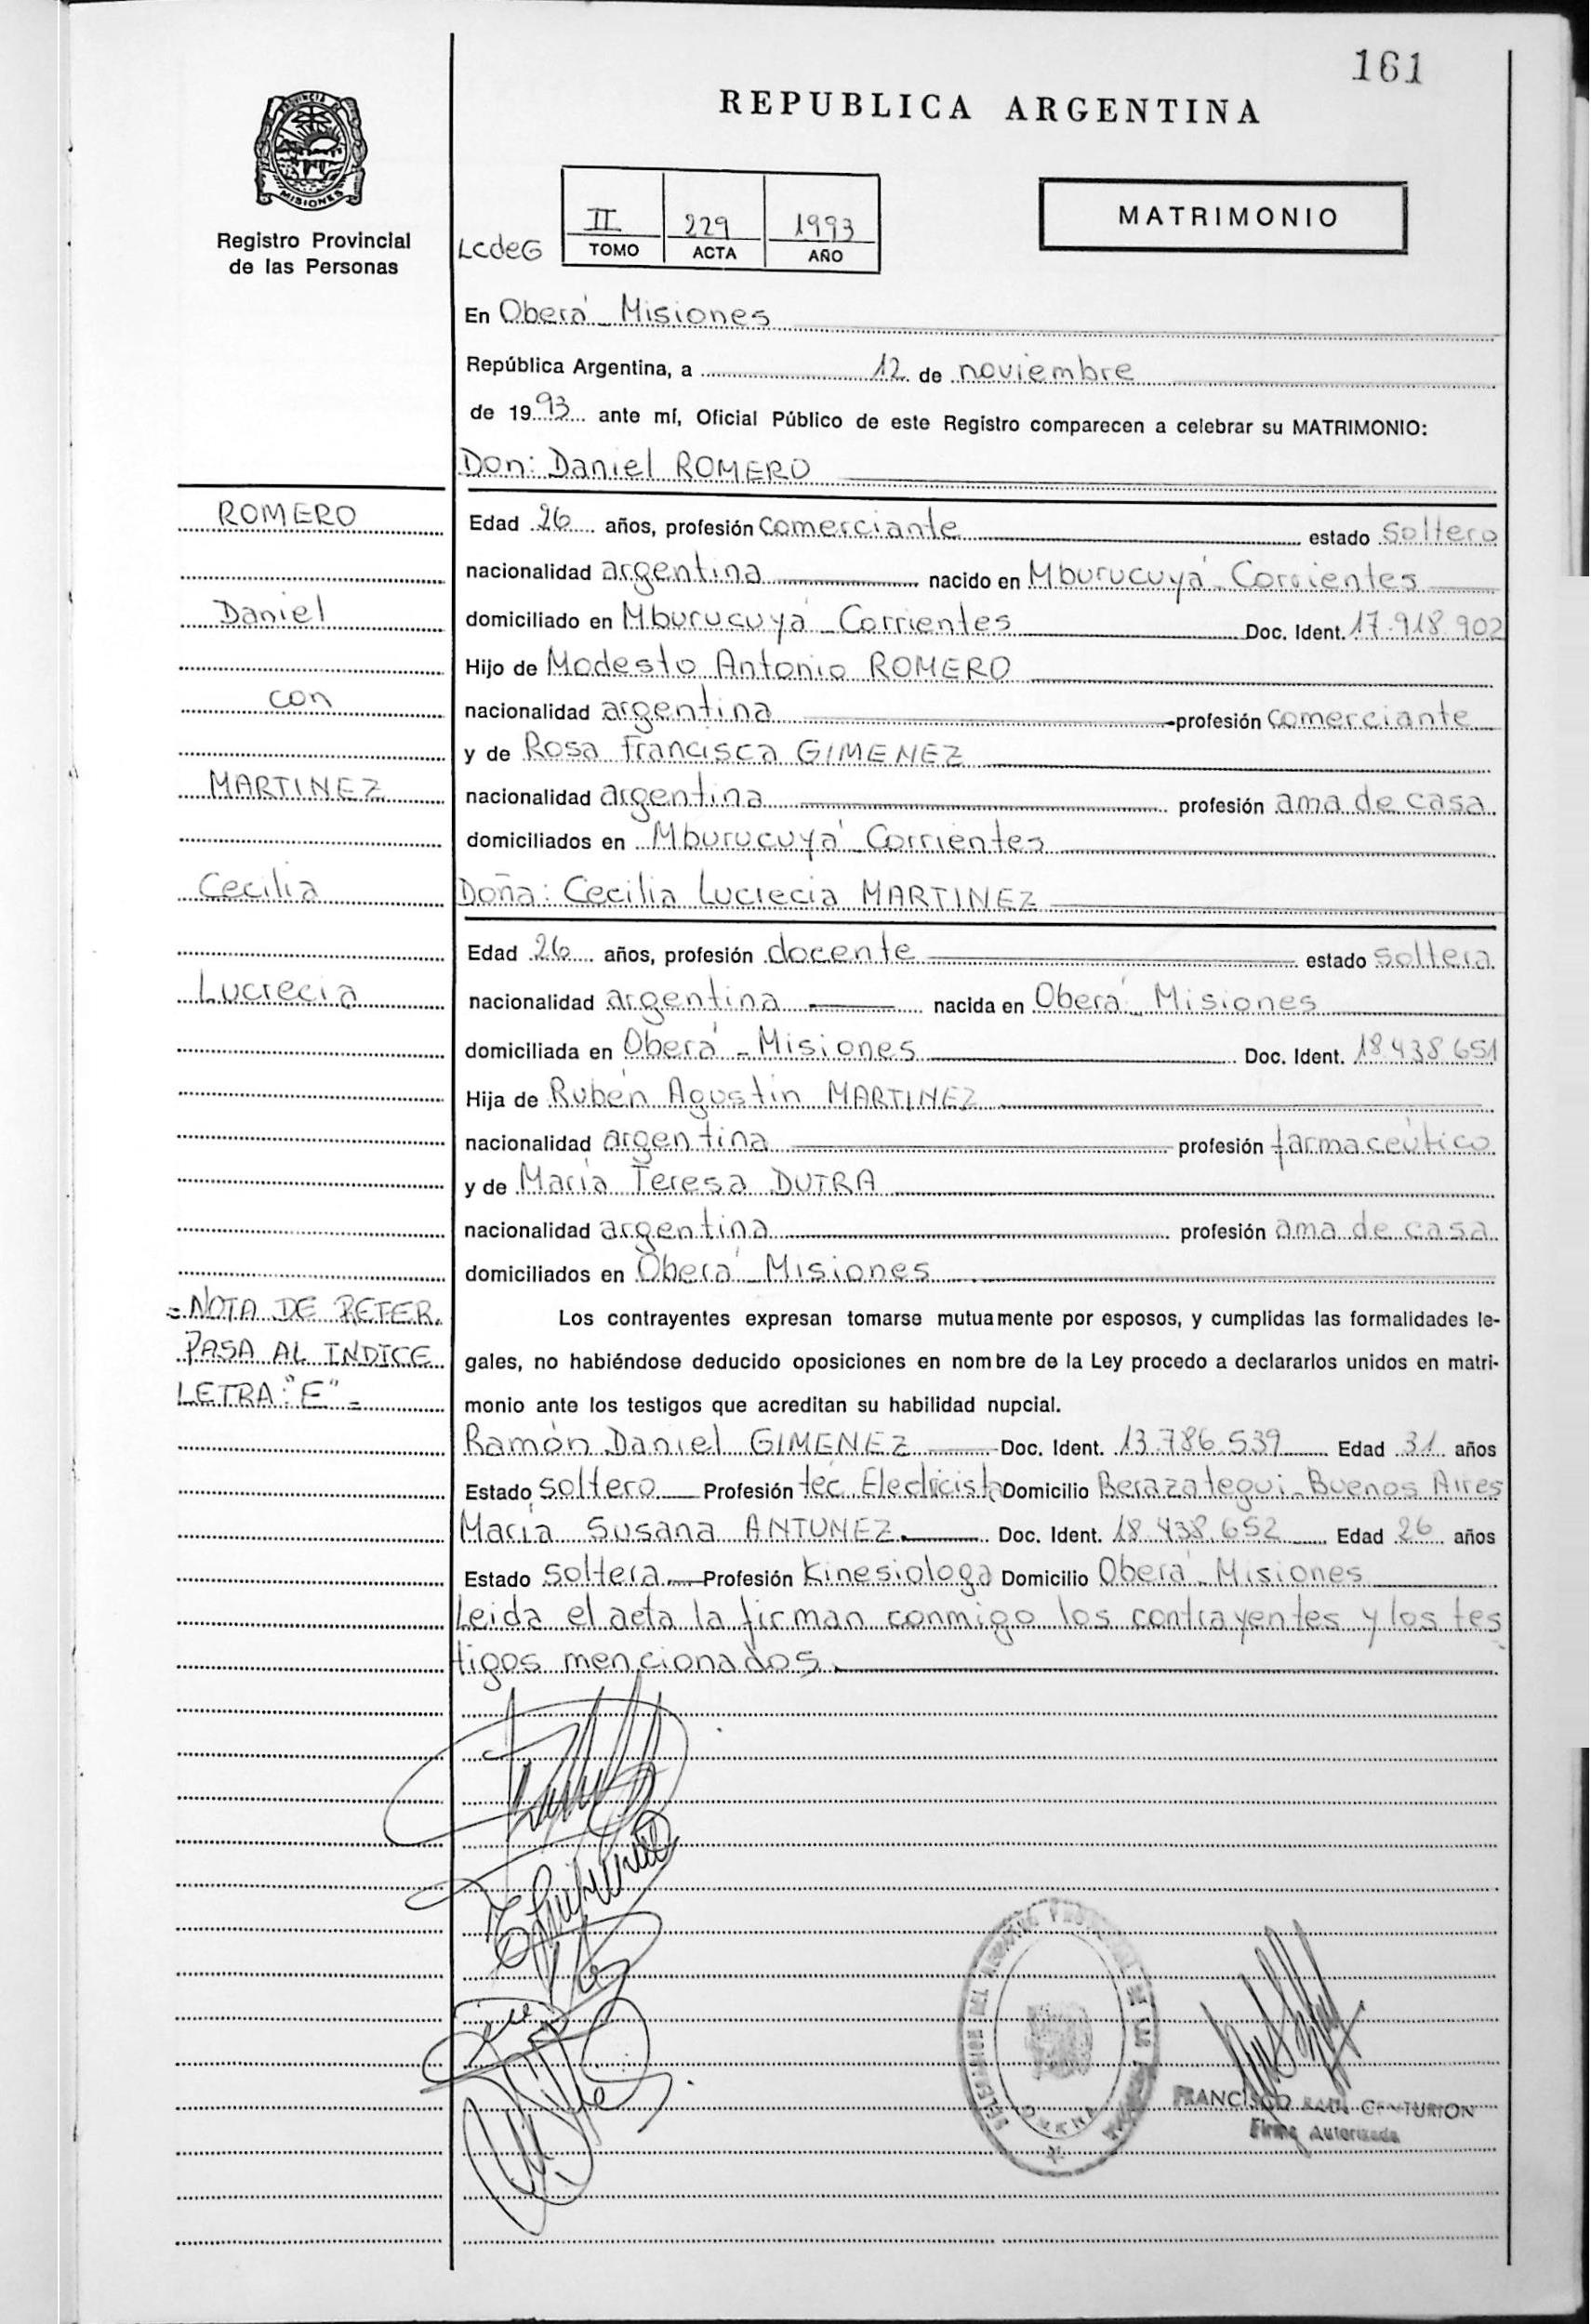 161
REPUBLICA ARGENTINA
MISIONES
Registro Provincial
de las Personas
LcdeG
II 229 1993
TOMO ACTA AÑO
MATRIMONIO
En Oberá - Misiones
República Argentina, a 12 de noviembre
de 1993 ante mí, Oficial Público de este Registro comparecen a celebrar su MATRIMONIO:
Don: Daniel ROMERO
ROMERO
Daniel
con
MARTINEZ
Cecilia
Lucrecia
Edad 26 años, profesión comerciante estado soltero
nacionalidad argentina nacido en Mburucuyá - Corrientes
domiciliado en Mburucuyá - Corrientes Doc. Ident. 17.918.902
Hijo de Modesto Antonio ROMERO
nacionalidad argentina profesión comerciante
y de Rosa Francisca GIMENEZ
nacionalidad argentina profesión ama de casa
domiciliados en Mburucuyá - Corrientes
Doña: Cecilia Lucrecia MARTINEZ
Edad 26 años, profesión docente estado soltera
nacionalidad argentina nacida en Oberá - Misiones
domiciliada en Oberá - Misiones Doc. Ident. 18.438.651
Hija de Rubén Agustín MARTINEZ
nacionalidad argentina profesión farmaceútico
y de María Teresa DUTRA
nacionalidad argentina profesión ama de casa
domiciliados en Oberá - Misiones
= NOTA DE REFER.
PASA AL INDICE
LETRA: "E" =
Los contrayentes expresan tomarse mutuamente por esposos, y cumplidas las formalidades le-
gales, no habiéndose deducido oposiciones en nombre de la Ley procedo a declararlos unidos en matri-
monio ante los testigos que acreditan su habilidad nupcial.
Ramón Daniel GIMENEZ Doc. Ident. 13.786.539 Edad 31 años
Estado soltero Profesión téc. Electricista Domicilio Berazategui - Buenos Aires
María Susana ANTUNEZ Doc. Ident. 18.438.652 Edad 26 años
Estado soltera Profesión Kinesiologa Domicilio Oberá - Misiones
Leida el acta la firman conmigo los contrayentes y los tes
tigos mencionados.
OBERA
FRANCISCO RAUL CENTURION
Firma Autorizada